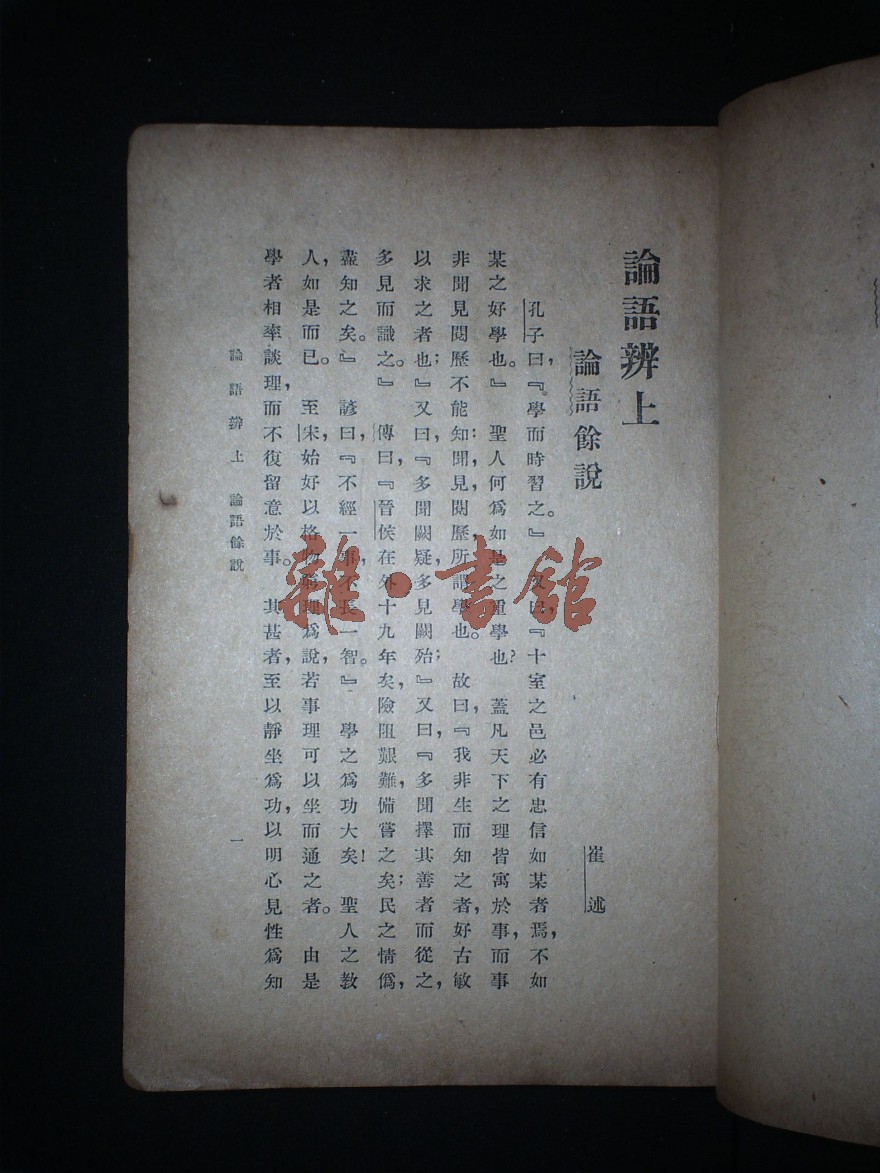 論語辨上
論語餘說
崔述
孔子曰,『學而時習之。』又曰,『十室之邑必有忠信如某者焉,不如
某之好學也。』聖人何爲如是之重學也?蓋凡天下之理皆寓於事,而事
非聞見閱歷不能知;聞,見,閱歷,所謂學也。故曰,『我非生而知之者,好古敏
以求之者也;』又曰,『多聞闕疑,多見闕殆;』又曰,『多聞擇其善者而從之,
多見而識之。』傳曰,『晉侯在外十九年矣,險阻艱難,備嘗之矣;民之情僞,
盡知之矣。』諺曰,『不經一事,不長一智。』學之爲功大矣!聖人之敎
人,如是而已。至宋,始好以格物窮理爲說,若事理可以坐而通之者。由是
學者相率談理,而不復留意於事。其甚者,至以靜坐爲功,以明心見性爲知
論語辨上 論語餘說
一
雜·書館